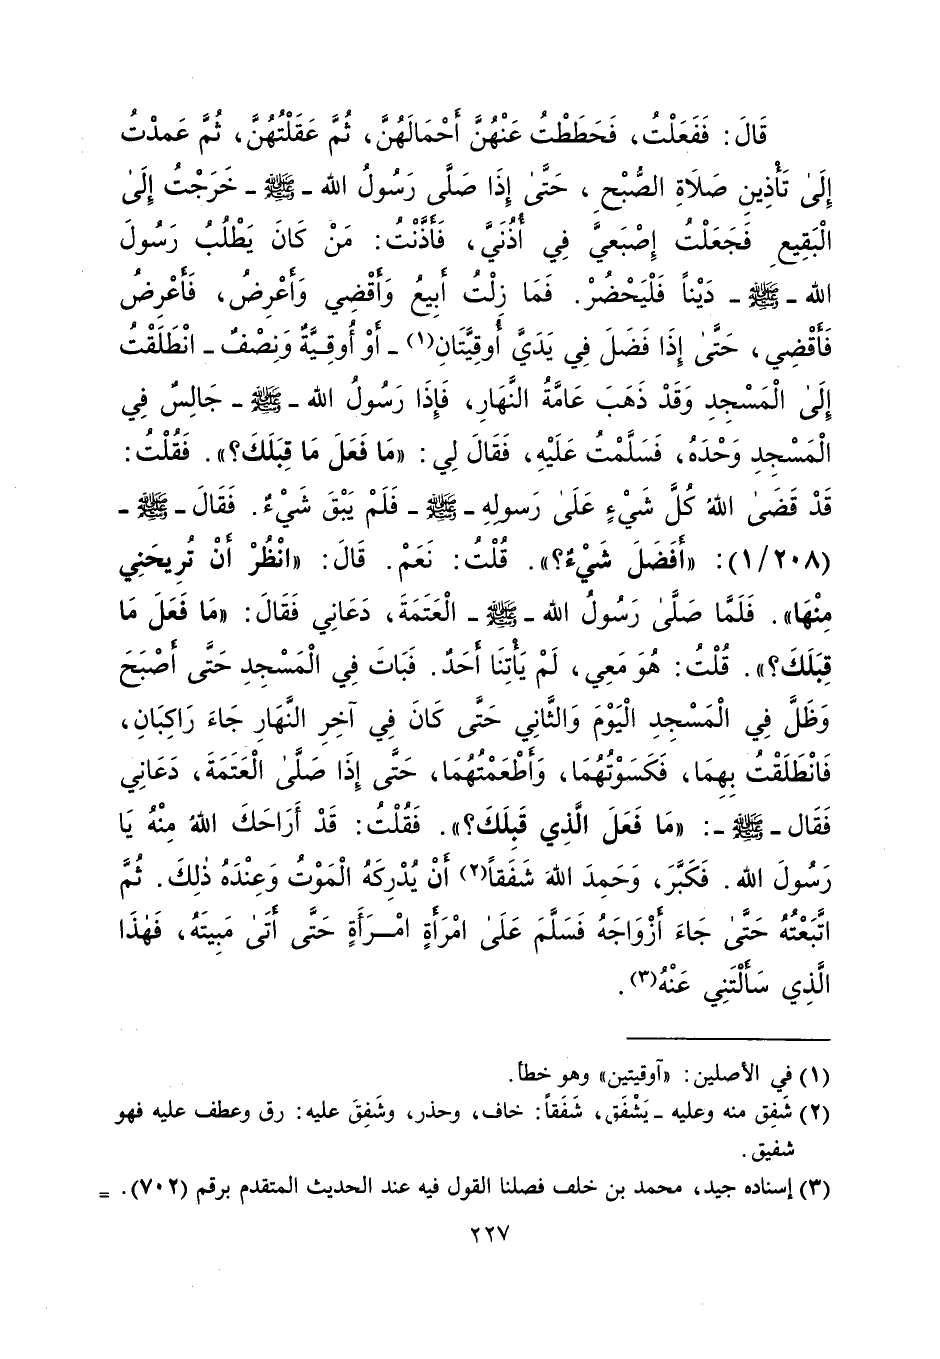 قَالَ: فَفَعَلْتُ، فَحَطَطْتُ عَنْهُنَّ أَحْمَالَهُنَّ، ثُمَّ عَقَلْتُهُنَّ، ثُمَّ عَمدْتُ
إِلَىٰ تَأْذِينِ صَلَاةِ الصُّبْحِ، حَتَّىٰ إِذَا صَلَّى رَسُولُ اللهِ ـ ﷺ ـ خَرَجْتُ إِلَىٰ
الْبَقِيعِ فَجَعَلْتُ إِصْبَعيَّ فِي أُذُنَيَّ، فَأَذَّنْتُ: مَنْ كَانَ يَطْلُبُ رَسُولَ
الله ـ ﷺ ـ دَيْناً فَلْيَحْضُرْ. فَمَا زِلْتُ أَبِيعُ وَأَقْضِي وَأَعْرِضُ، فَأَعْرِضُ
فَأَقْضِي، حَتَّىٰ إِذَا فَضَلَ فِي يَدَيَّ أُوقِيَّتَانِ(١) ـ أَوْ أُوقِيَّةٌ وَنِصْفٌ ـ انْطَلَقْتُ
إِلَىٰ الْمَسْجِدِ وَقَدْ ذَهَبَ عَامَّةُ النَّهَارِ، فَإِذَا رَسُولُ اللهِ ـ ﷺ ـ جَالِسٌ فِي
الْمَسْجِدِ وَحْدَهُ، فَسَلَّمْتُ عَلَيْهِ، فَقَالَ لِي: «مَا فَعَلَ مَا قِبَلَكَ؟». فَقُلْتُ:
قَدْ قَضَىٰ اللهُ كُلَّ شَيْءٍ عَلَىٰ رَسولِهِ ـ ﷺ ـ فَلَمْ يَبْقَ شَيْءٌ. فَقَالَ ـ ﷺ ـ
(١/٢٠٨): «أَفَضَلَ شَيْءٌ؟». قُلْتُ: نَعَمْ. قَالَ: «انْظُرْ أَنْ تُرِيحَنِي
مِنْهَا». فَلَمَّا صَلَّىٰ رَسُولُ اللهِ ـ ﷺ ـ الْعَتَمَةَ، دَعَانِي فَقَالَ: «مَا فَعَلَ مَا
قِبَلَكَ؟». قُلْتُ: هُوَ مَعِي، لَمْ يَأْتِنَا أَحَدٌ. فَبَاتَ فِي الْمَسْجِدِ حَتَّى أَصْبَحَ
وَظَلَّ فِي الْمَسْجِدِ الْيَوْمَ وَالثَّانِي حَتَّى كَانَ فِي آخِرِ النَّهَارِ جَاءَ رَاكِبَانِ،
فَانْطَلَقْتُ بِهِمَا، فَكَسَوْتُهُمَا، وَأَطْعَمْتُهُمَا، حَتَّى إِذَا صَلَّىٰ الْعَتَمَةَ، دَعَانِي
فَقَال ـ ﷺ ـ: «مَا فَعَلَ الَّذِي قِبَلَكَ؟». فَقُلْتُ: قَدْ أَرَاحَكَ اللهُ مِنْهُ يَا
رَسُولَ اللهِ. فَكَبَّرَ، وَحَمِدَ اللهَ شَفَقاً(٢) أَنْ يُدْرِكَهُ الْمَوْتُ وَعِنْدَهُ ذٰلِكَ. ثُمَّ
اتَّبَعْتُهُ حَتَّىٰ جَاءَ أَزْوَاجَهُ فَسَلَّمَ عَلَىٰ امْرَأَةٍ امْـرَأَةٍ حَتَّى أَتَىٰ مَبِيتَهُ، فَهٰذَا
الَّذِي سَأَلْتَنِي عَنْهُ(٣).
(١) في الأصلين: «أوقيتين» وهو خطأ.
(٢) شَفِق منه وعليه ـ يَشْفَق، شَفَقاً: خاف، وحذر، وشَفِقَ عليه: رق وعطف عليه فهو
شفيق.
(٣) إسناده جيد، محمد بن خلف فصلنا القول فيه عند الحديث المتقدم برقم (٧٠٢). =
٢٢٧